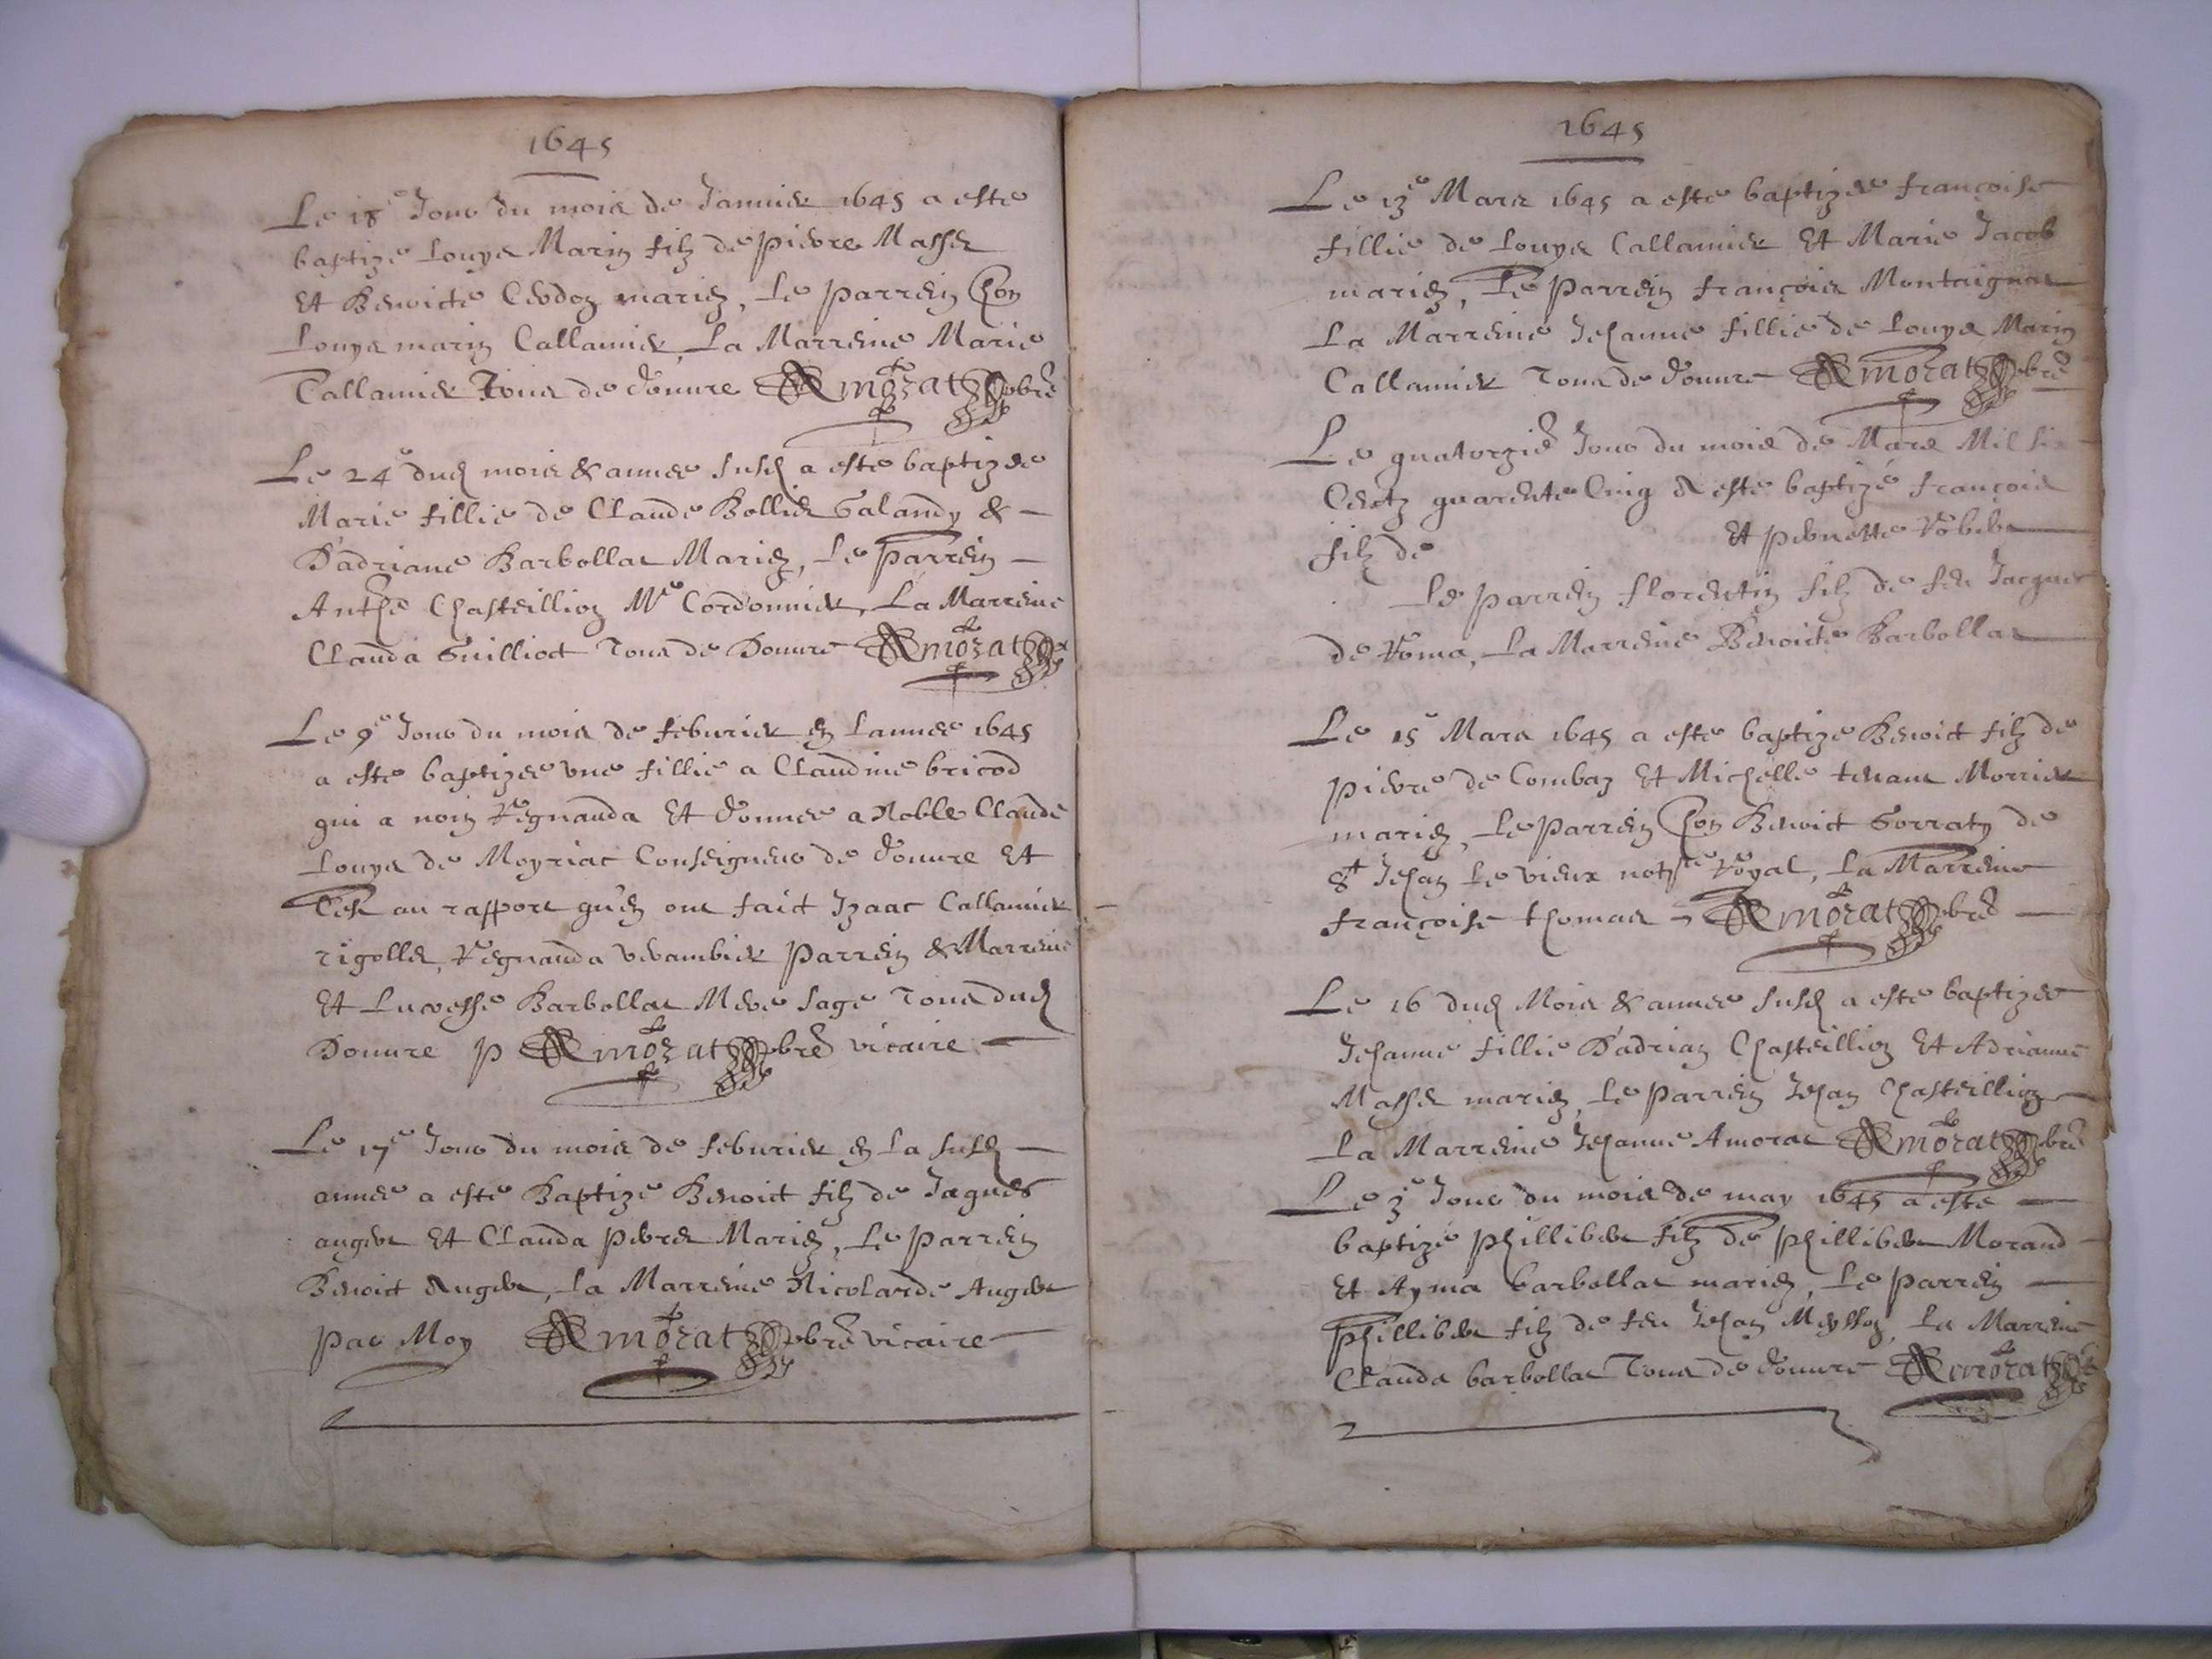 1645
Le 18e Jour du mois de Januier 1645 a este
baptize Louys Marin filz de pierre Masse
Et Benoicte mariez, Le parrein hon
Louys marin Callamier, La Marreine Marie
Callamier Tous de douure Amorat pbre
Le 24e dud mois & annee susd a este baptizee
Marie fillie de Claude Bollier Galandy &
D'adriane Barbollat Mariez, Le parrein
Anthe Chasteillion Me Cordonnier, La Marreine
Clauda Guilliod Tous de Douure Amorat
Le 9e Jour du mois de feburier en Lannee 1645
a este baptizee vne fillie a Claudine bricod
qui a nom Regnauda Et donnee a Noble Claude
Louys de Moyriac Conseigneur de douure Et
Cest au rapport qu'en ont faict Izaac Callamier
rigollet, Regnauda parrein & Marreine
Et Lucresse Barbollat Mere sage Tous dud
Douure p Amorat pbre vicaire
Le 17e Jour du mois de feburier en La susd
annee a este Baptize Benoict filz de Jaques
auger Et Clauda Mariez, Le parrein
Benoict Auger, La Marreine Nicolarde Auger
par Moy Amorat pbre vicaire
1645
Le 13e Mars 1645 a este baptizee françoise
fillie de Louys Callamier Et Marie Jacob
mariez, Le parrein françois Montaignat
La Marreine Jehanne fillie de Louys Marin
Callamier Tous de douure Amorat pbre
Le quatorzie Jour du mois de Mars Mil six
Centz quarente Cinq A este baptizé françois
filz de Et pernette Robert
Le parrein florentin filz de feu Jacques
de Roma, La Marreine Benoicte Barbollat
Le 15e Mars 1645 a este baptize Benoict filz de
pierre de Combaz Et Michelle Morrier
mariez, Le parrein hon Benoict Gorraty de
St Jehan Le vieux notre Royal, La Marreine
françoise thomas Amorat pbre
Le 16 dud Mois & annee susd a este baptizee
Jehanne fillie D'adrian Chasteillion Et Adrianne
Masse mariez, Le parrein Jehan Chasteillion
La Marreine Jehanne Amorat Amorat pbre
Le 3e Jour du mois de may 1645 a este
baptizé phillibert filz de phillibert Morand
Et Ayma barbollat mariez, Le parrein
phillibert filz de feu Jehan La Marreine
Clauda barbollat Tous de douure Amorat